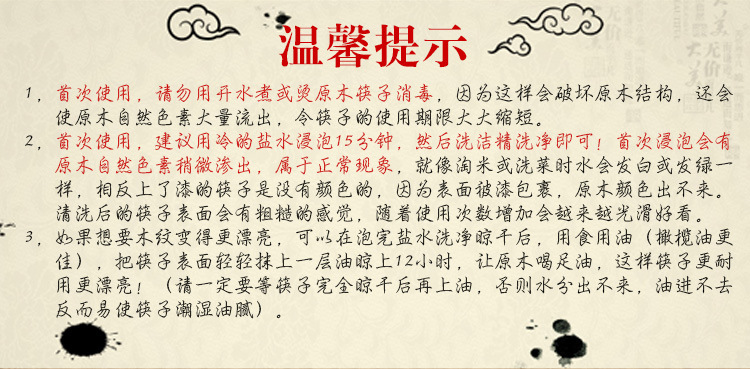 温馨提示
1，首次使用，请勿用开水煮或烫原木筷子消毒，因为这样会破坏原木结构，还会
使原木自然色素大量流出，令筷子的使用期限大大缩短。
2，首次使用，建议用冷的盐水浸泡15分钟，然后洗洁精洗净即可！首次浸泡会有
原木自然色素稍微渗出，属于正常现象，就像淘米或洗菜时水会发白或发绿一
样，相反上了漆的筷子是没有颜色的，因为表面被漆包裹，原木颜色出不来。
清洗后的筷子表面会有粗糙的感觉，随着使用次数增加会越来越光滑好看。
3，如果想要木纹变得更漂亮，可以在泡完盐水洗净晾干后，用食用油（橄榄油更
佳），把筷子表面轻轻抹上一层油晾上12小时，让原木喝足油，这样筷子更耐
用更漂亮！（请一定要等筷子完全晾干后再上油，否则水分出不来，油进不去
反而易使筷子潮湿油腻）。